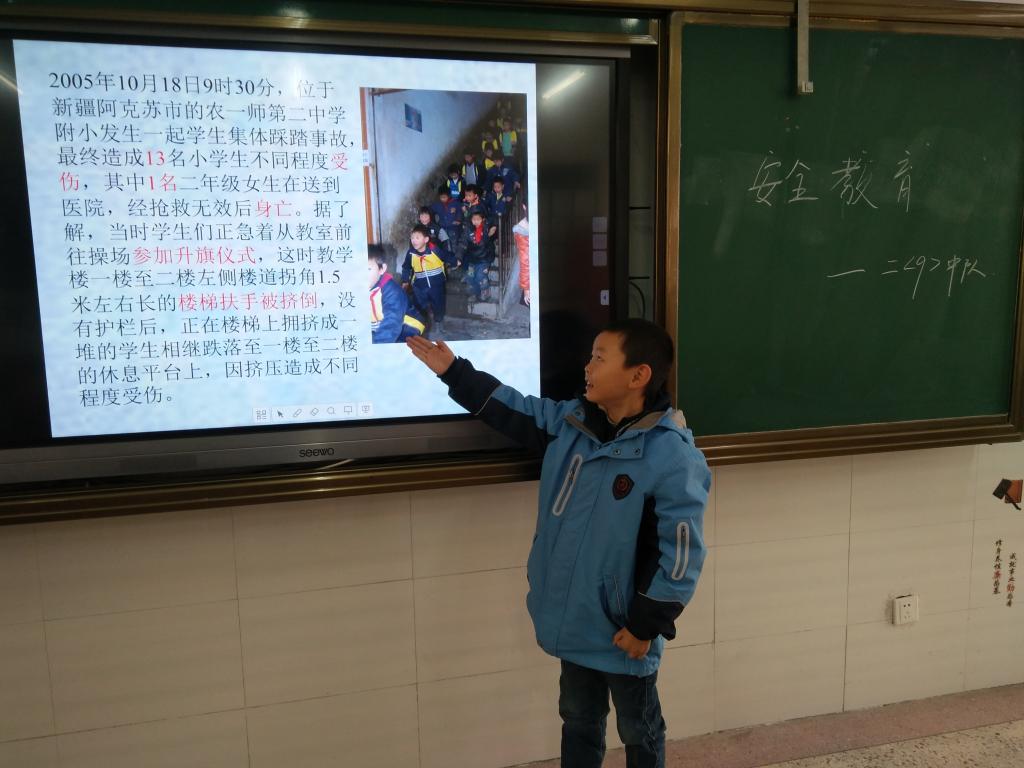 2005年10月18日9时30分，位于
新疆阿克苏市的农一师第二中学
附小发生一起学生集体踩踏事故，
最终造成13名小学生不同程度受
伤，其中1名二年级女生在送到
医院，经抢救无效后身亡。据了
解，当时学生们正急着从教室前
往操场参加升旗仪式，这时教学
楼一楼至二楼左侧楼道拐角1.5
米左右长的楼梯扶手被挤倒，没
有护栏后，正在楼梯上拥挤成一
堆的学生相继跌落至一楼至二楼
的休息平台上，因挤压造成不同
程度受伤。
seewo
安全教育
— 二<9>中队